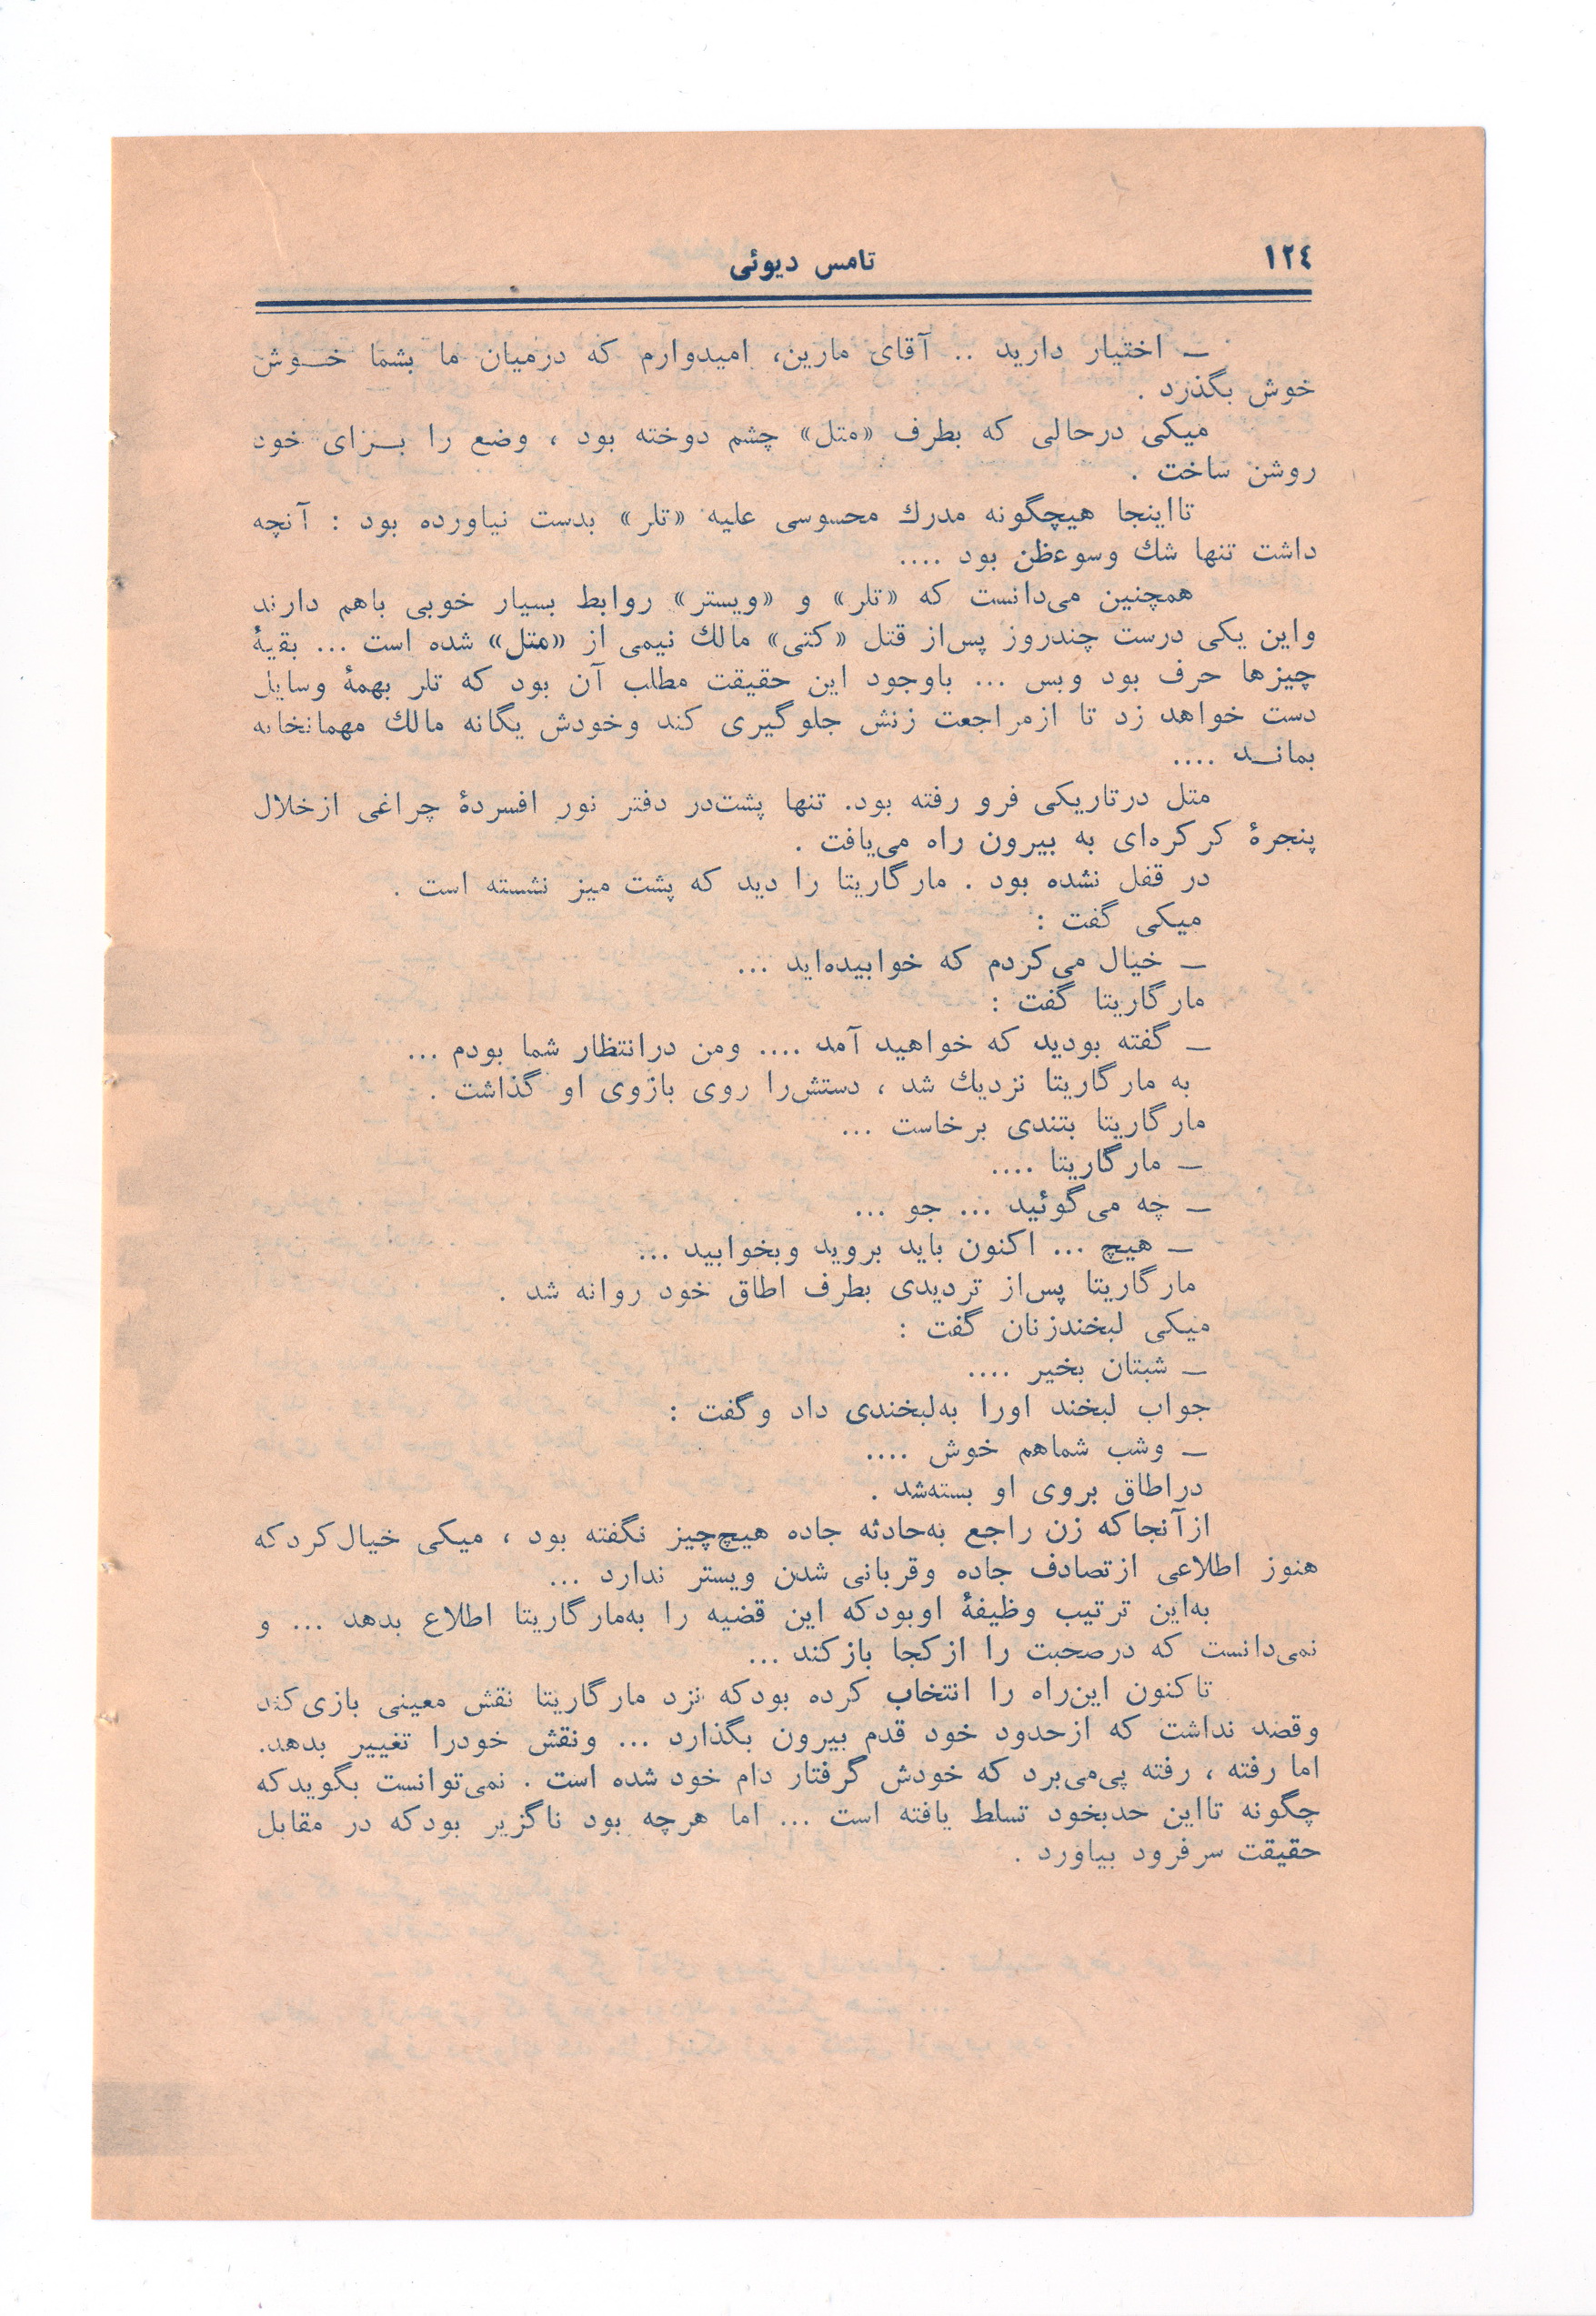 ١٢٤
تامس دیوئی
ـ اختیار دارید .. آقای مارین، امیدوارم که درمیان ما بشما خــوش
خوش بگذرد .
میکی درحالی که بطرف «متل» چشم دوخته بود ، وضع را بــرای خود
روشن ساخت .
تااینجا هیچگونه مدرك محسوسی علیه «تلر» بدست نیاورده بود : آنچه
داشت تنها شك وسوءظن بود ....
همچنین می‌دانست که «تلر» و «ویستر» روابط بسیار خوبی باهم دارند
واین یکی درست چندروز پس‌از قتل «کتی» مالك نیمی از «متل» شده است ... بقیهٔ
چیزها حرف بود وبس ... باوجود این حقیقت مطلب آن بود که تلر بهمهٔ وسایل
دست خواهد زد تا ازمراجعت زنش جلوگیری کند وخودش یگانه مالك مهمانخانه
بمانــد ....
متل درتاریکی فرو رفته بود. تنها پشت‌در دفتر نور افسردهٔ چراغی ازخلال
پنجرهٔ کرکره‌ای به بیرون راه می‌یافت .
در قفل نشده بود . مارگاریتا را دید که پشت میز نشسته است .
میکی گفت :
ـ خیال می‌کردم که خوابیده‌اید ...
مارگاریتا گفت :
ـ گفته بودید که خواهید آمد .... ومن درانتظار شما بودم ...
به مارگاریتا نزدیك شد ، دستش‌را روی بازوی او گذاشت .
مارگاریتا بتندی برخاست ...
ـ مارگاریتا ....
ـ چه می‌گوئید ... جو ...
ـ هیچ ... اکنون باید بروید وبخوابید ...
مارگاریتا پس‌از تردیدی بطرف اطاق خود روانه شد .
میکی لبخندزنان گفت :
ـ شبتان بخیر ....
جواب لبخند اورا به‌لبخندی داد وگفت :
ـ وشب شماهم خوش ....
دراطاق بروی او بسته‌شد .
ازآنجاکه زن راجع به‌حادثه جاده هیچ‌چیز نگفته بود ، میکی خیال‌کردکه
هنوز اطلاعی ازتصادف جاده وقربانی شدن ویستر ندارد ...
به‌این ترتیب وظیفهٔ اوبودکه این قضیه را به‌مارگاریتا اطلاع بدهد ... و
نمی‌دانست که درصحبت را ازکجا بازکند ...
تاکنون این‌راه را انتخاب کرده بودکه نزد مارگاریتا نقش معینی بازی‌کند
وقصد نداشت که ازحدود خود قدم بیرون بگذارد ... ونقش خودرا تغییر بدهد.
اما رفته ، رفته پی‌می‌برد که خودش گرفتار دام خود شده است . نمی‌توانست بگویدکه
چگونه تااین حدبخود تسلط یافته است ... اما هرچه بود ناگزیر بودکه در مقابل
حقیقت سرفرود بیاورد .